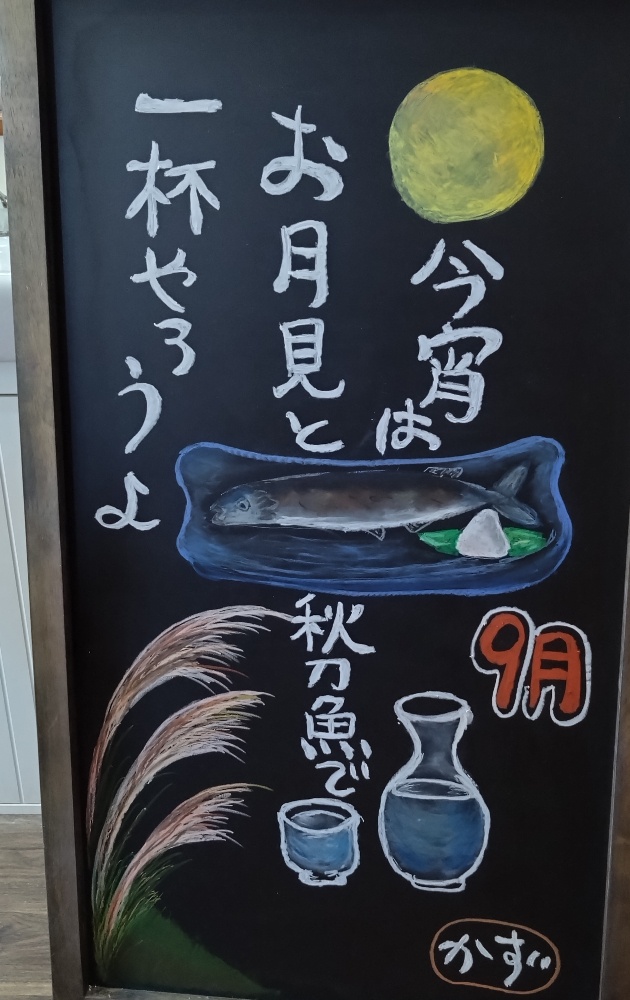 今宵は
お月見と
秋刀魚で
一杯やろうよ
9月
かず